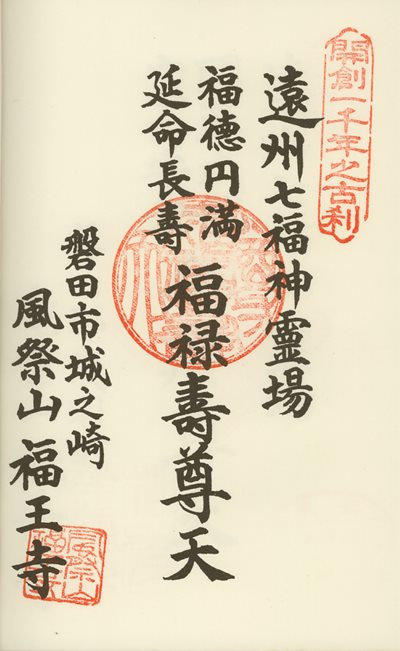 開創一千年之古刹
遠州七福神霊場
福徳円満
延命長壽
福禄壽尊天
磐田市城之崎
風祭山福王寺